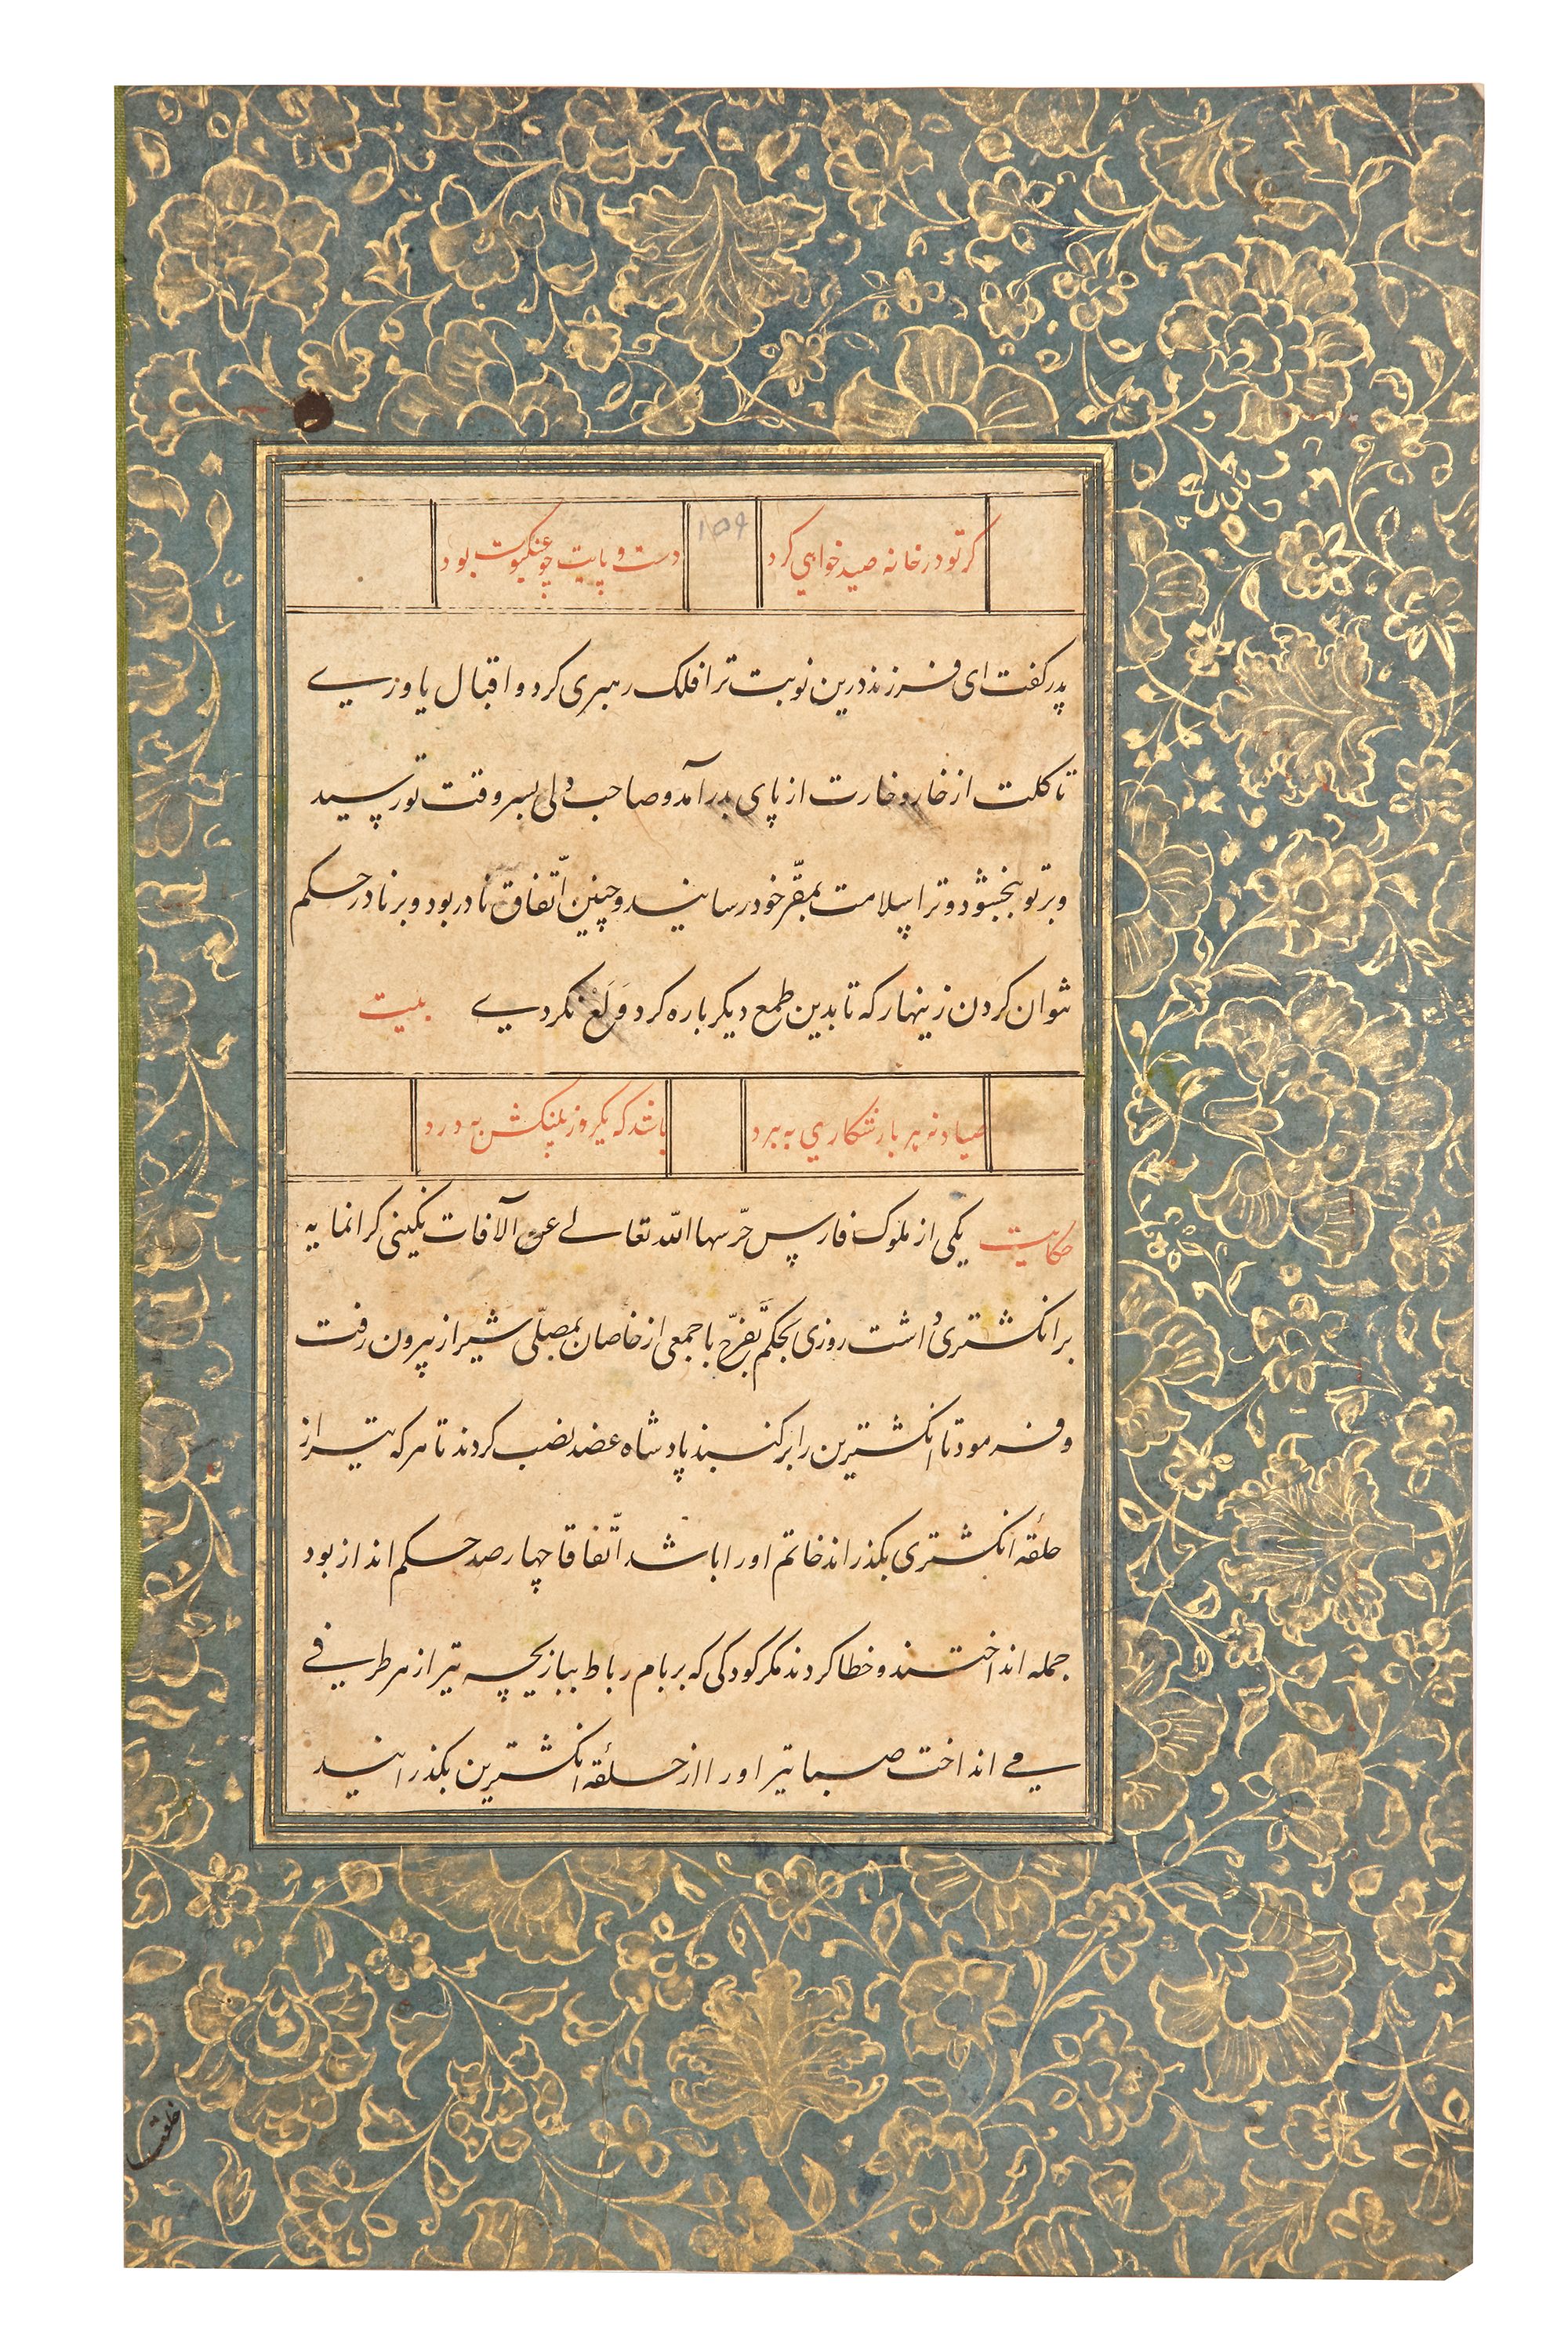 کر تو در خانه صید خواهی کرد دست و پایت چو عنکبوت بود
۱۵۹
پدر کفت ای فرزند درین نوبت ترا فلک رهبری کرد و اقبال یاوزی
تا کلت از خار و خارت از پای بدر آمد و صاحب دلی بسر وقت تو رسید
و بر تو بخشود و ترا بسلامت بمقرّ خود رسانید و چنین اتّفاق نادر بود و بر نادر حکم
نتوان کردن زینهار که تا بدین طمع دیکر باره کرد وَلَعْ نکردی بیت
صیاد نه هر بار شکاری به برد باشد که یکروز پلنکش به درد
حکایت یکی از ملوک فارس حرّسها الله تعالی عن الآفات نکینی کرانمایه
بر انکشتری داشت روزی بحکم تفرّج با جمعی از خاصان بمصلّی شیراز بیرون رفت
و فرمود تا انکشترین را بر کنبند پادشاه عضد نصب کردند تا هر که تیر از
حلقهٔ انکشتری بکذراند خاتم او را باشد اتّفاقا چهارصد حکم انداز بود
جمله انداختند و خطا کردند مکر کودکی که بر بام رباط ببازیچه تیر از هر طرفی
می انداخت صبا تیر او را از حلقهٔ انکشترین بکذرانید
خلعت